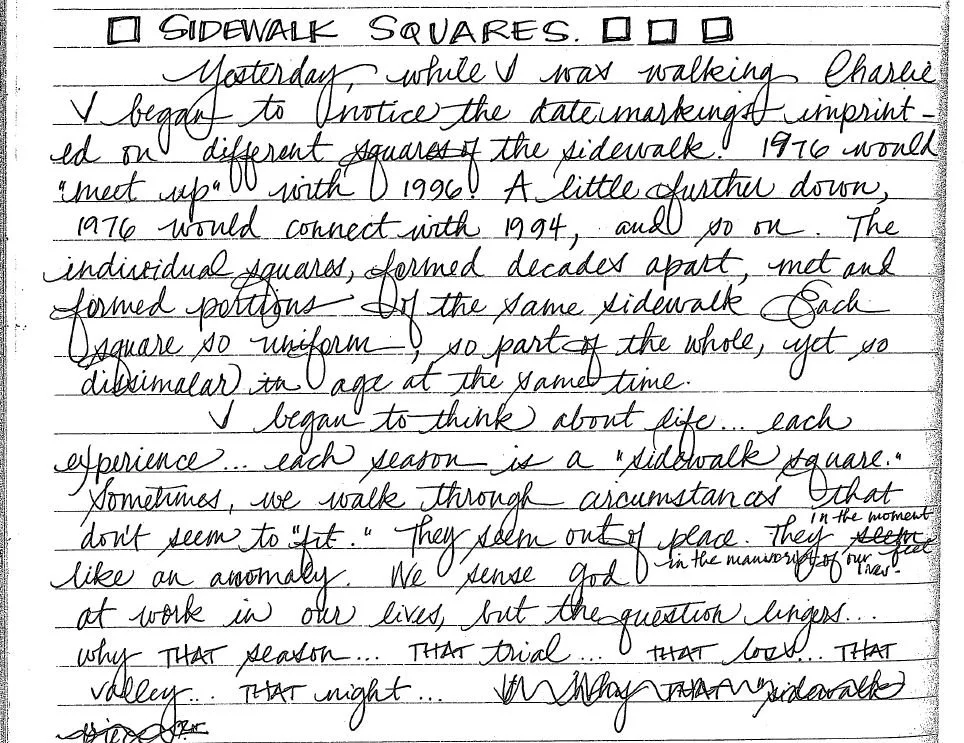 SIDEWALK SQUARES.
Yesterday, while I was walking Charlie
I began to notice the date markings imprint-
ed on different squares of the sidewalk. 1976 would
"meet up" with 1996. A little further down,
1976 would connect with 1994, and so on. The
individual squares, formed decades apart, met and
formed portions of the same sidewalk Each
square so uniform, so part of the whole, yet so
dissimalar in age at the same time.
I began to think about life... each
experience... each season is a "sidewalk square."
Sometimes, we walk through circumstances that
don't seem to "fit." They seem out of place. They seem
in the moment
feel
like an anomaly. We sense God
in the manuscript of our lives.
at work in our lives, but the question lingers...
why THAT season... THAT trial... THAT loss... THAT
valley... THAT night... Why THAT "sidewalk